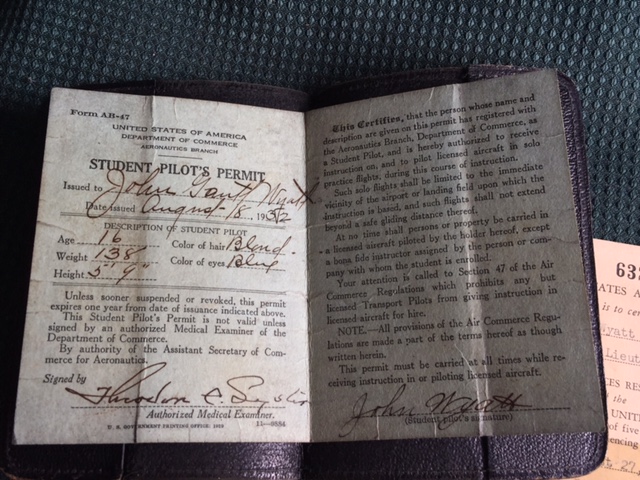 Form AB-47
UNITED STATES OF AMERICA
DEPARTMENT OF COMMERCE
AERONAUTICS BRANCH
STUDENT PILOT'S PERMIT
Issued to John Gantt Wyatt
Date issued August 18, 1932
DESCRIPTION OF STUDENT PILOT
Age 16 Color of hair Blond
Weight 138 Color of eyes Blue
Height 5' 9"
Unless sooner suspended or revoked, this permit
expires one year from date of issuance indicated above.
This Student Pilot's Permit is not valid unless
signed by an authorized Medical Examiner of the
Department of Commerce.
By authority of the Assistant Secretary of Com-
merce for Aeronautics.
Signed by
Authorized Medical Examiner.
U. S. GOVERNMENT PRINTING OFFICE:
This Certifies, that the person whose name and
description are given on this permit has registered with
the Aeronautics Branch, Department of Commerce, as
a Student Pilot, and is hereby authorized to receive
instruction on, and to pilot licensed aircraft in solo
practice flights, during this course of instruction.
Such solo flights shall be limited to the immediate
vicinity of the airport or landing field upon which the
instruction is based, and such flights shall not extend
beyond a safe gliding distance thereof.
At no time shall persons or property be carried in
a licensed aircraft piloted by the holder hereof, except
a bona fide instructor assigned by the person or com-
pany with whom the student is enrolled.
Your attention is called to Section 47 of the Air
Commerce Regulations which prohibits any but
licensed Transport Pilots from giving instruction in
licensed aircraft for hire.
NOTE.—All provisions of the Air Commerce Regu-
lations are made a part of the terms hereof as though
written herein.
This permit must be carried at all times while re-
ceiving instruction in or piloting licensed aircraft.
John Wyatt
(Student pilot's signature)
632
ATES A
is to cer
Wyatt
Lieut
CES RES
the
UNIT
of five
encing
27